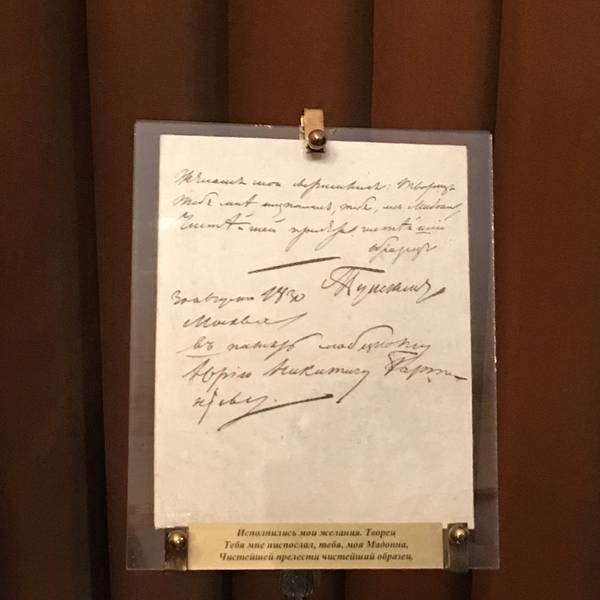 мои свершились: Творецъ
Тебя мнѣ ниспослалъ, тебя, моя
Чистѣйшей чистѣйшій
образецъ
Пушкинъ
30 августа 1830
Москва
въ память любезному
Юрію Никитичу Барте-
неву.
Исполнились мои желания. Творец
Тебя мне ниспослал, тебя, моя Мадонна,
Чистейшей прелести чистейший образец.